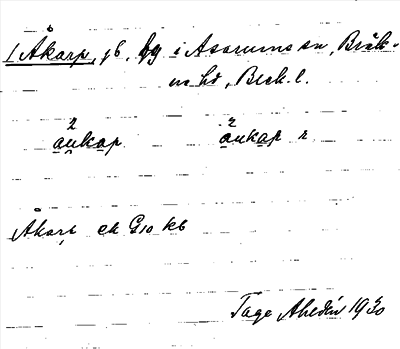 1 Åkarp, gb, by i Asarums sn, Bräk-
ne hd, Blek. l.
aukap. aukap 2
Åkarp ek G10 kb
Tage Ahldén 1930